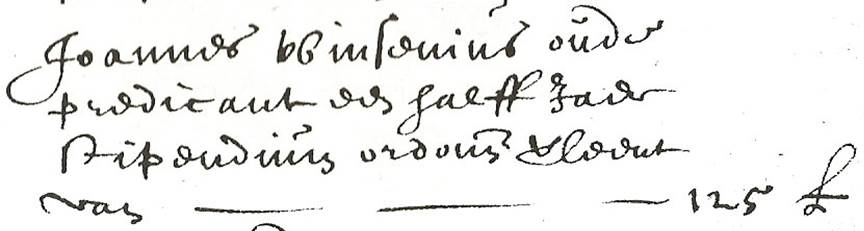 Joannes Winsenius oude
predicant een halff Jaer
stipendium ordons verleent
van — — — 125 £